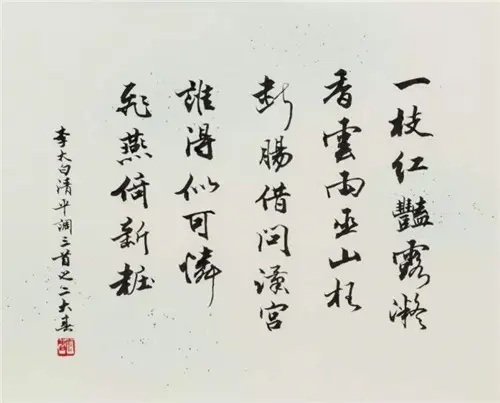 一枝红豔露凝
香雲雨巫山枉
断腸借問漢宮
誰得似可憐
飛燕倚新粧
李太白清平調三首之二大春